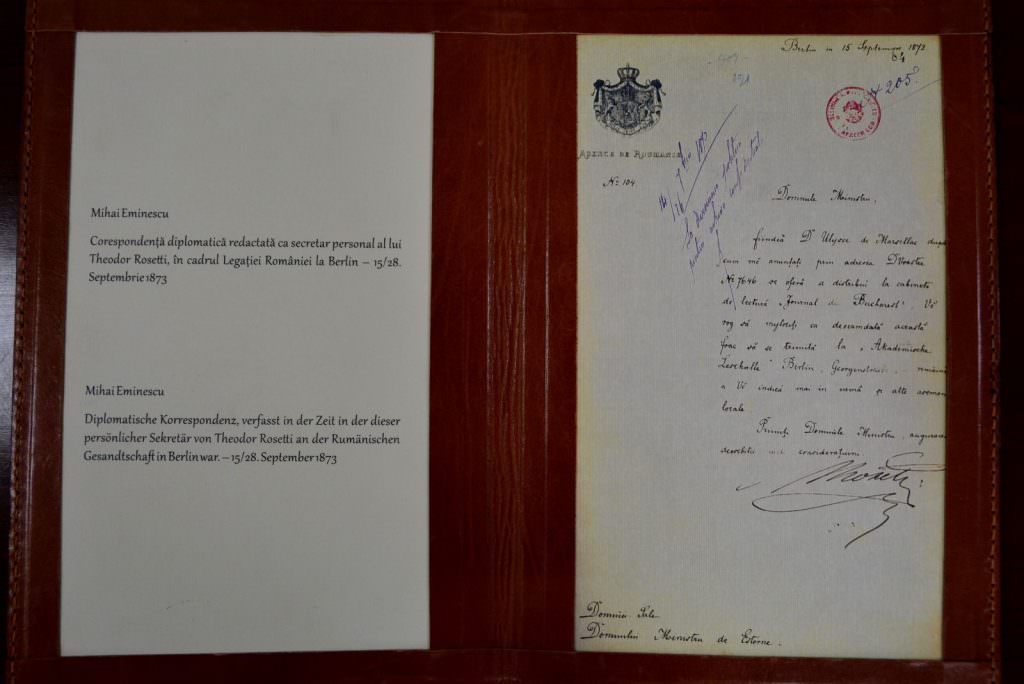 Mihai Eminescu
Corespondență diplomatică redactată ca secretar personal al lui
Theodor Rosetti, în cadrul Legației României la Berlin – 15/28.
Septembrie 1873
Mihai Eminescu
Diplomatische Korrespondenz, verfasst in der Zeit in der dieser
persönlicher Sekretär von Theodor Rosetti an der Rumänischen
Gesandtschaft in Berlin war. – 15/28. September 1873
Berlin in 15 Septemvrie 1873
205
AGENCE DE ROUMANIE
No 104
Domnule Ministru,
fiindcă Dl Ulysse de Marsillac după
cum mĕ anunțați prin adresa DVoastre
No 7646 se oferă a distribui la cabinete
de lectură „Journal de Bucharest" Vĕ
rog să mijlociți ca deocamdată această
foae să se trimită la „Akademische
Lesehalle" Berlin, Georgenstrasse,
a Vĕ indica mai în urmă și alte asemene
locale
Primiți Domnule Ministru, asigurarea
deosebitei mele considerațiuni
Rosetti
Domniei Sale
Domnului Ministru de Esterne.